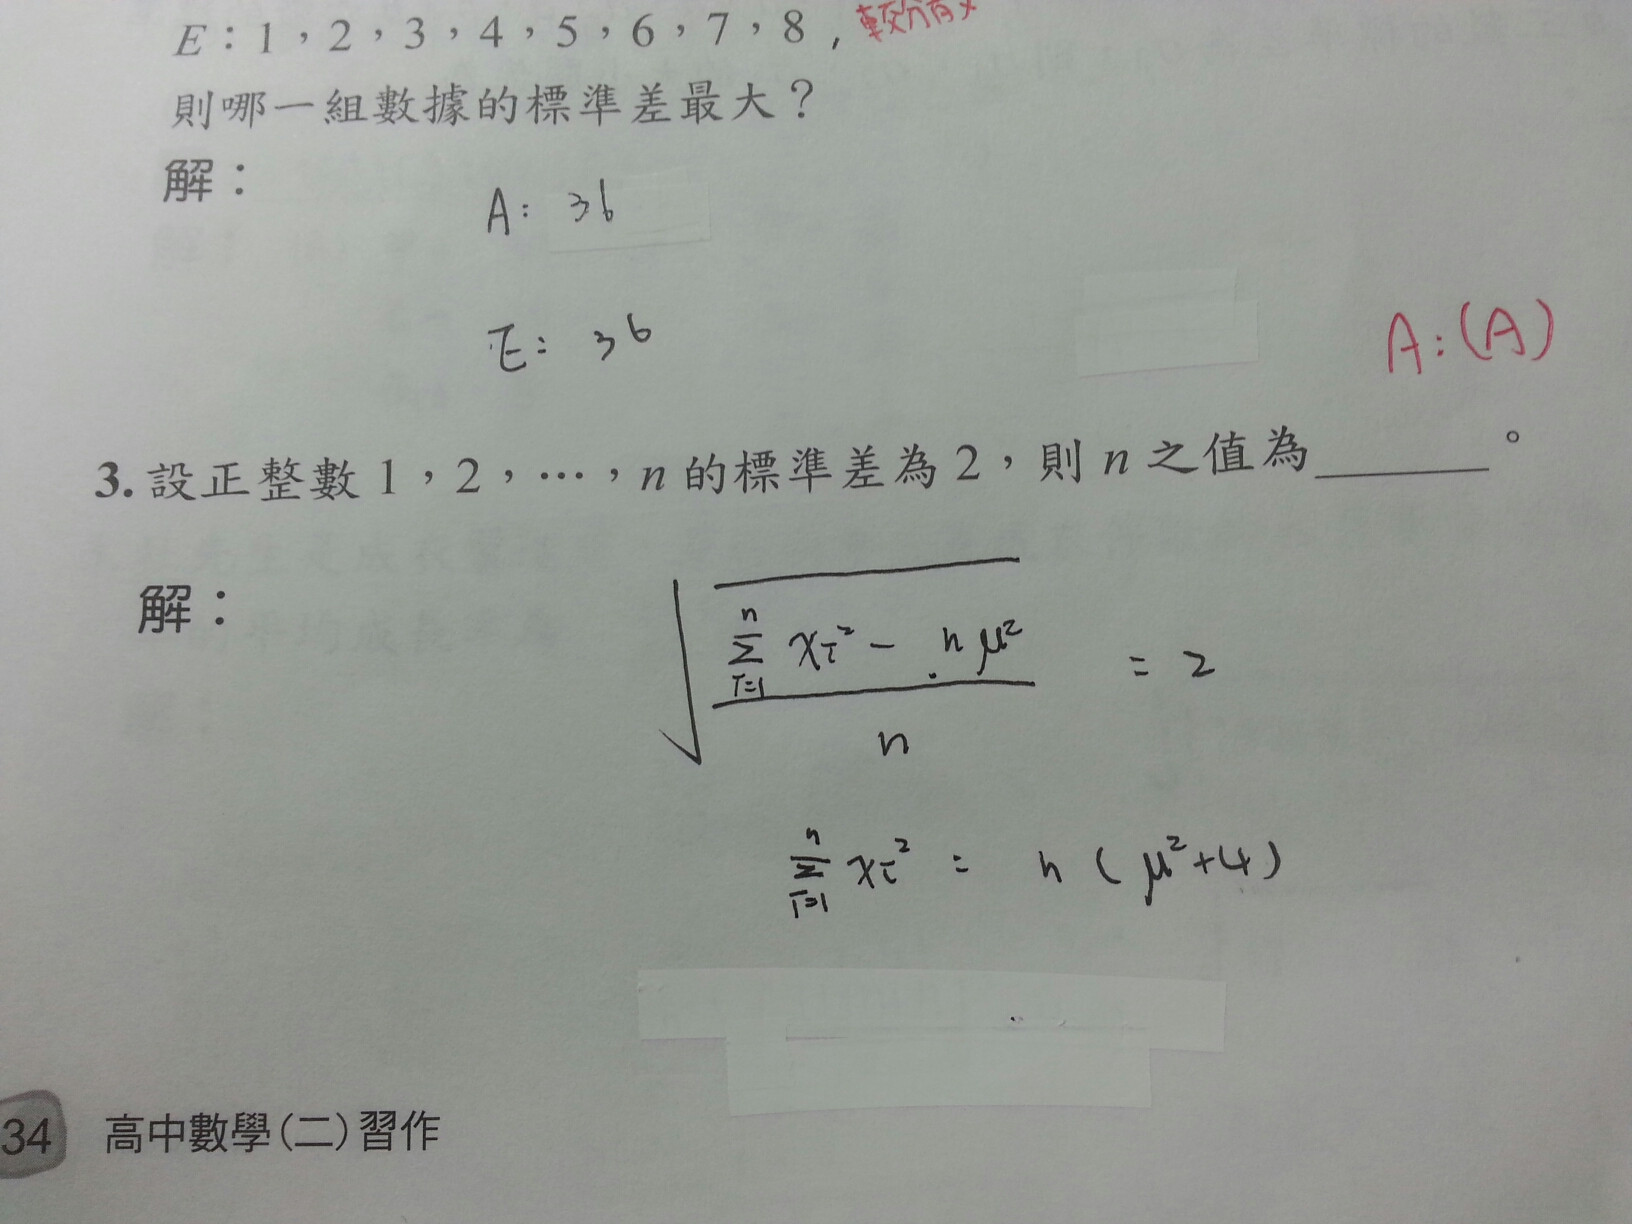 E：1，2，3，4，5，6，7，8，較分散
則哪一組數據的標準差最大？
解：
A: 36
E: 36
A:(A)
3. 設正整數1，2，⋯，n的標準差為2，則n之值為______。
解：
√((Σ_{i=1}^{n} xi² - nμ²)/n) = 2
Σ_{i=1}^{n} xi² = n(μ²+4)
34 高中數學(二)習作